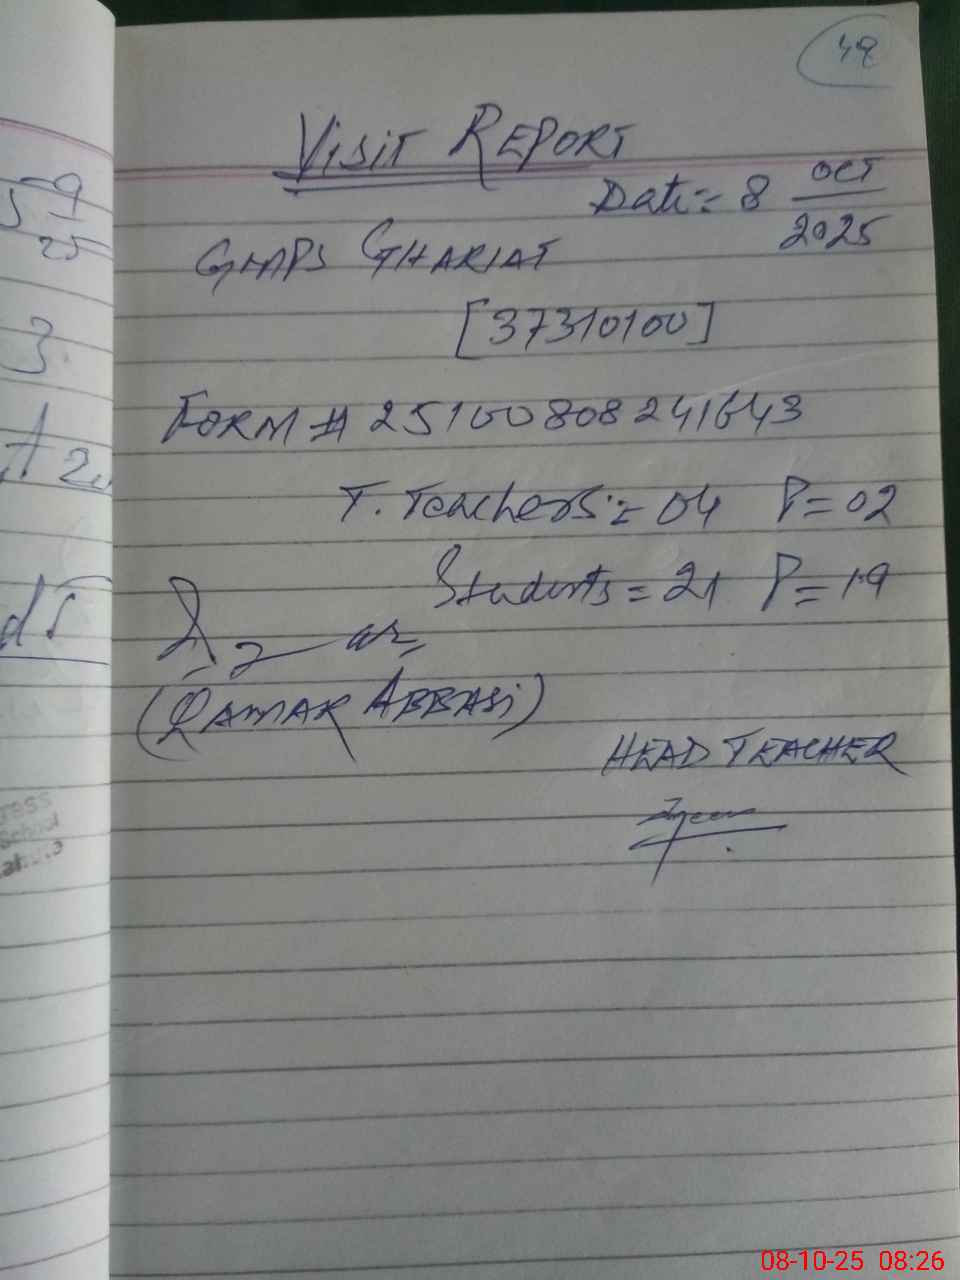 48
VISIT REPORT
Date = 8 OCT
2025
GMPS GHARIAT
[37310100]
FORM # 25100808241643
T. Teachers = 04 P = 02
Students = 21 P = 19
(QAMAR ABBASI)
HEAD TEACHER
5 9
25
3
School
08-10-25 08:26